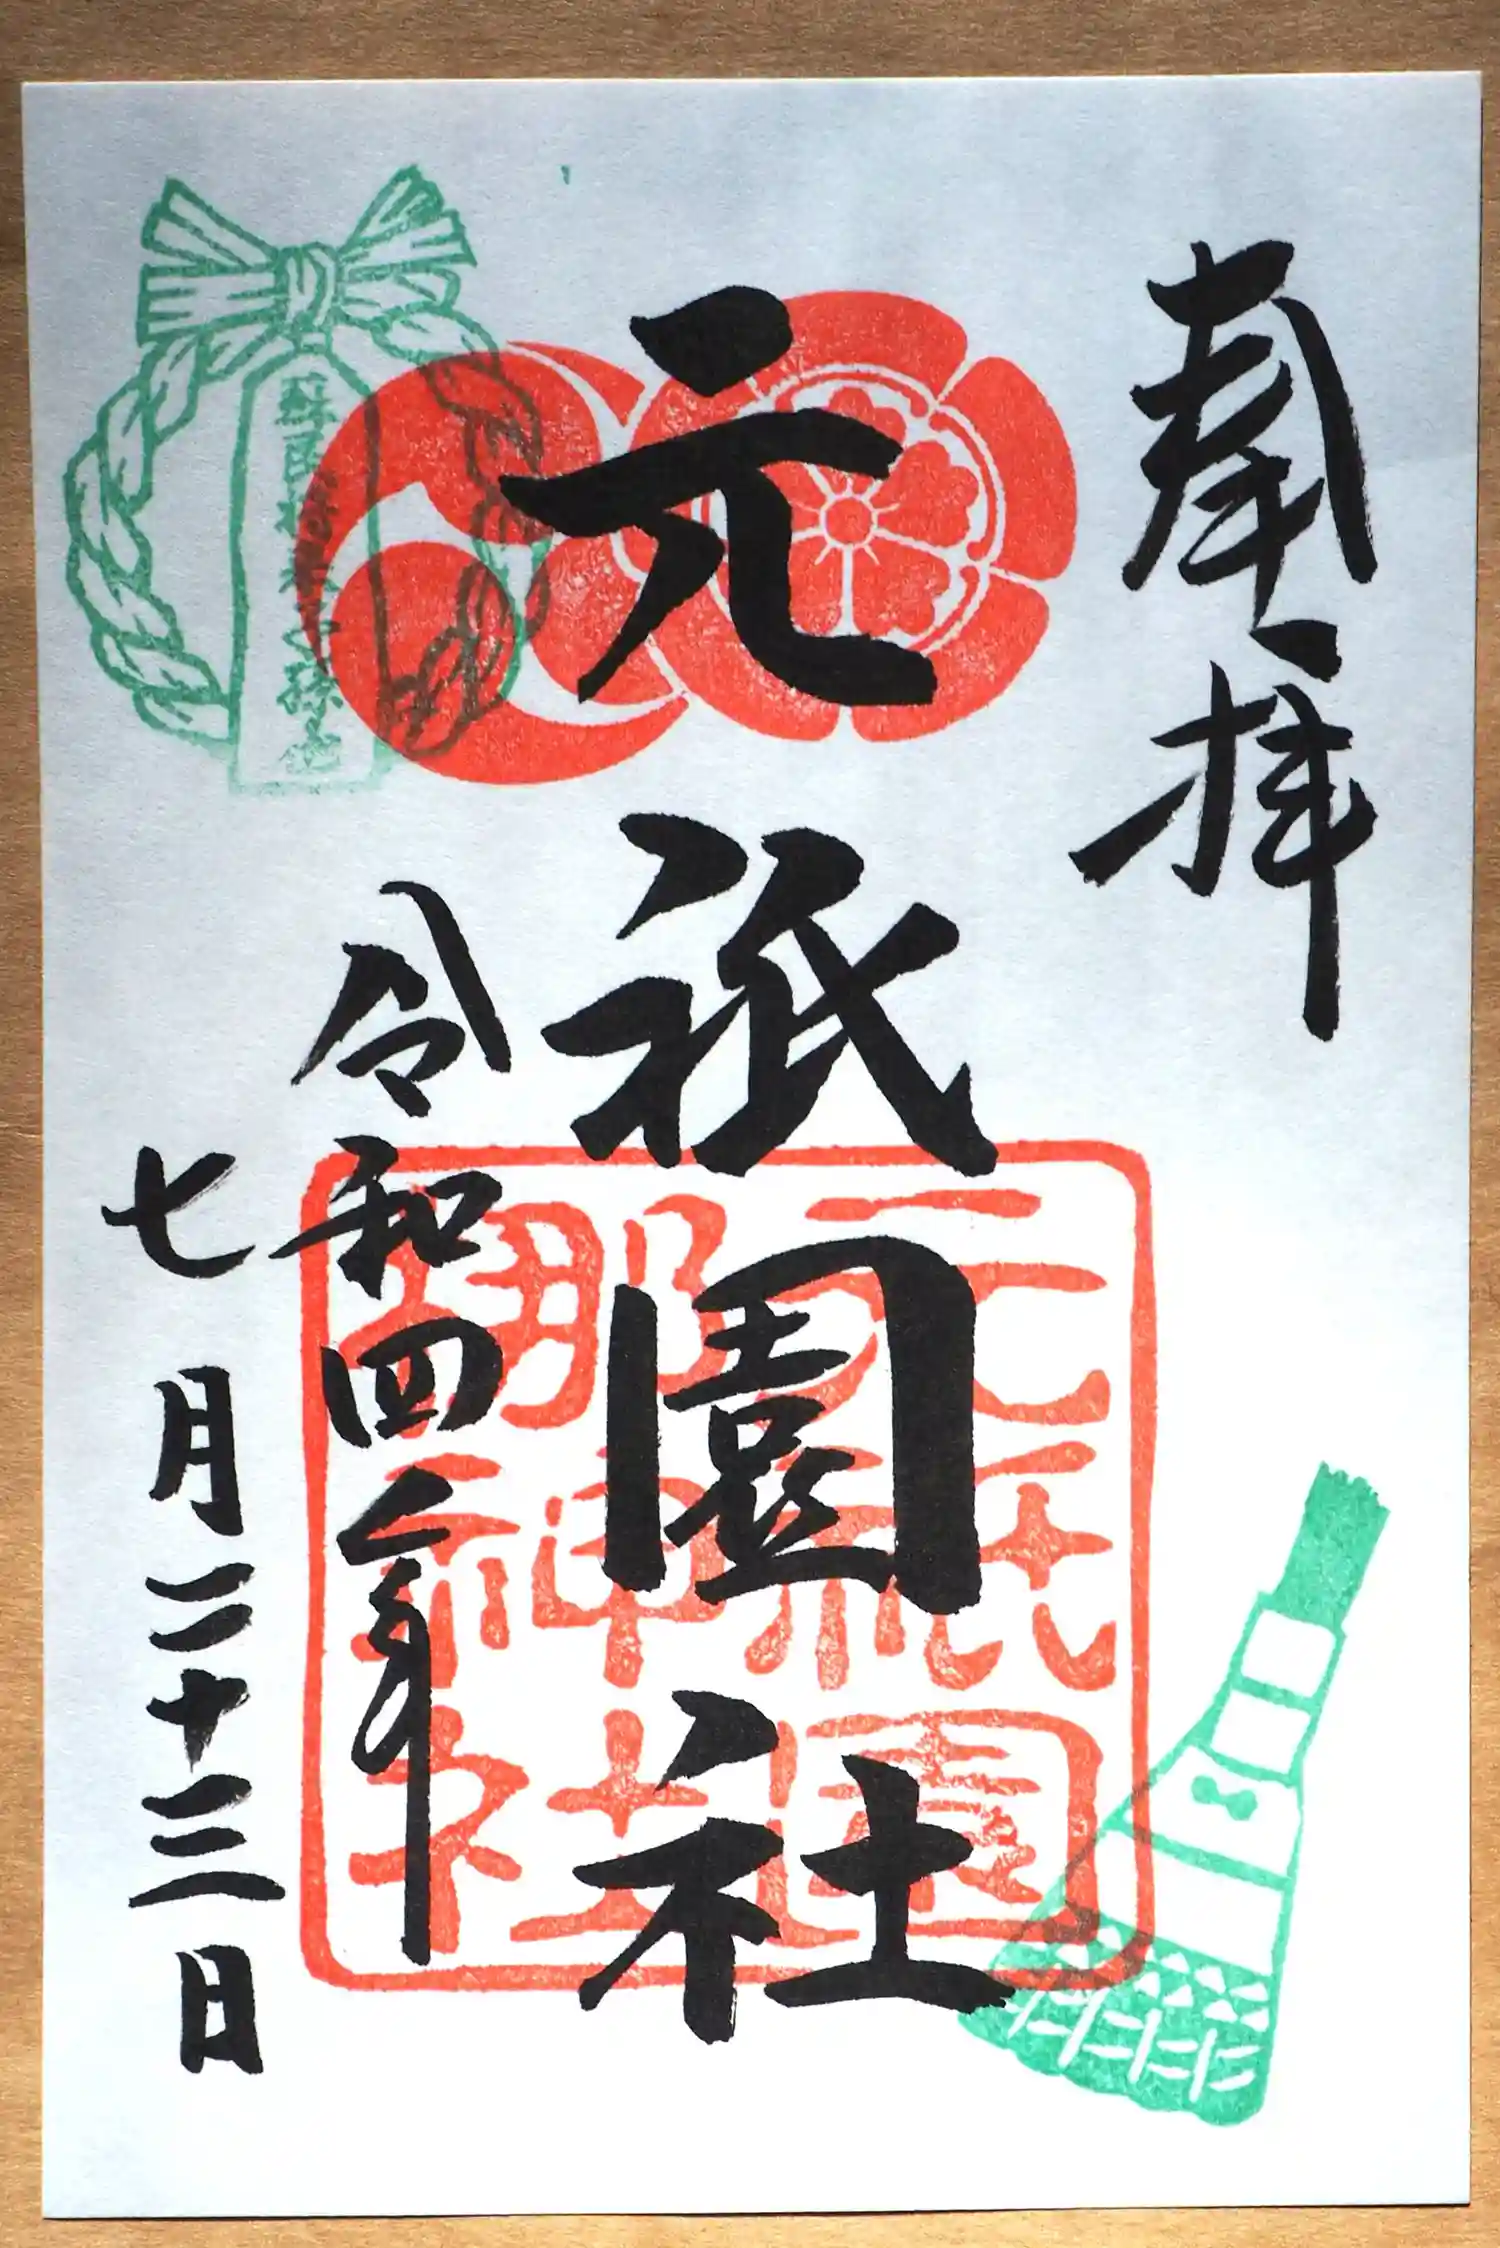 奉拝
元祇園社
令和四年
七月二十三日
元祇園
梛神社
蘇民将来之子孫也